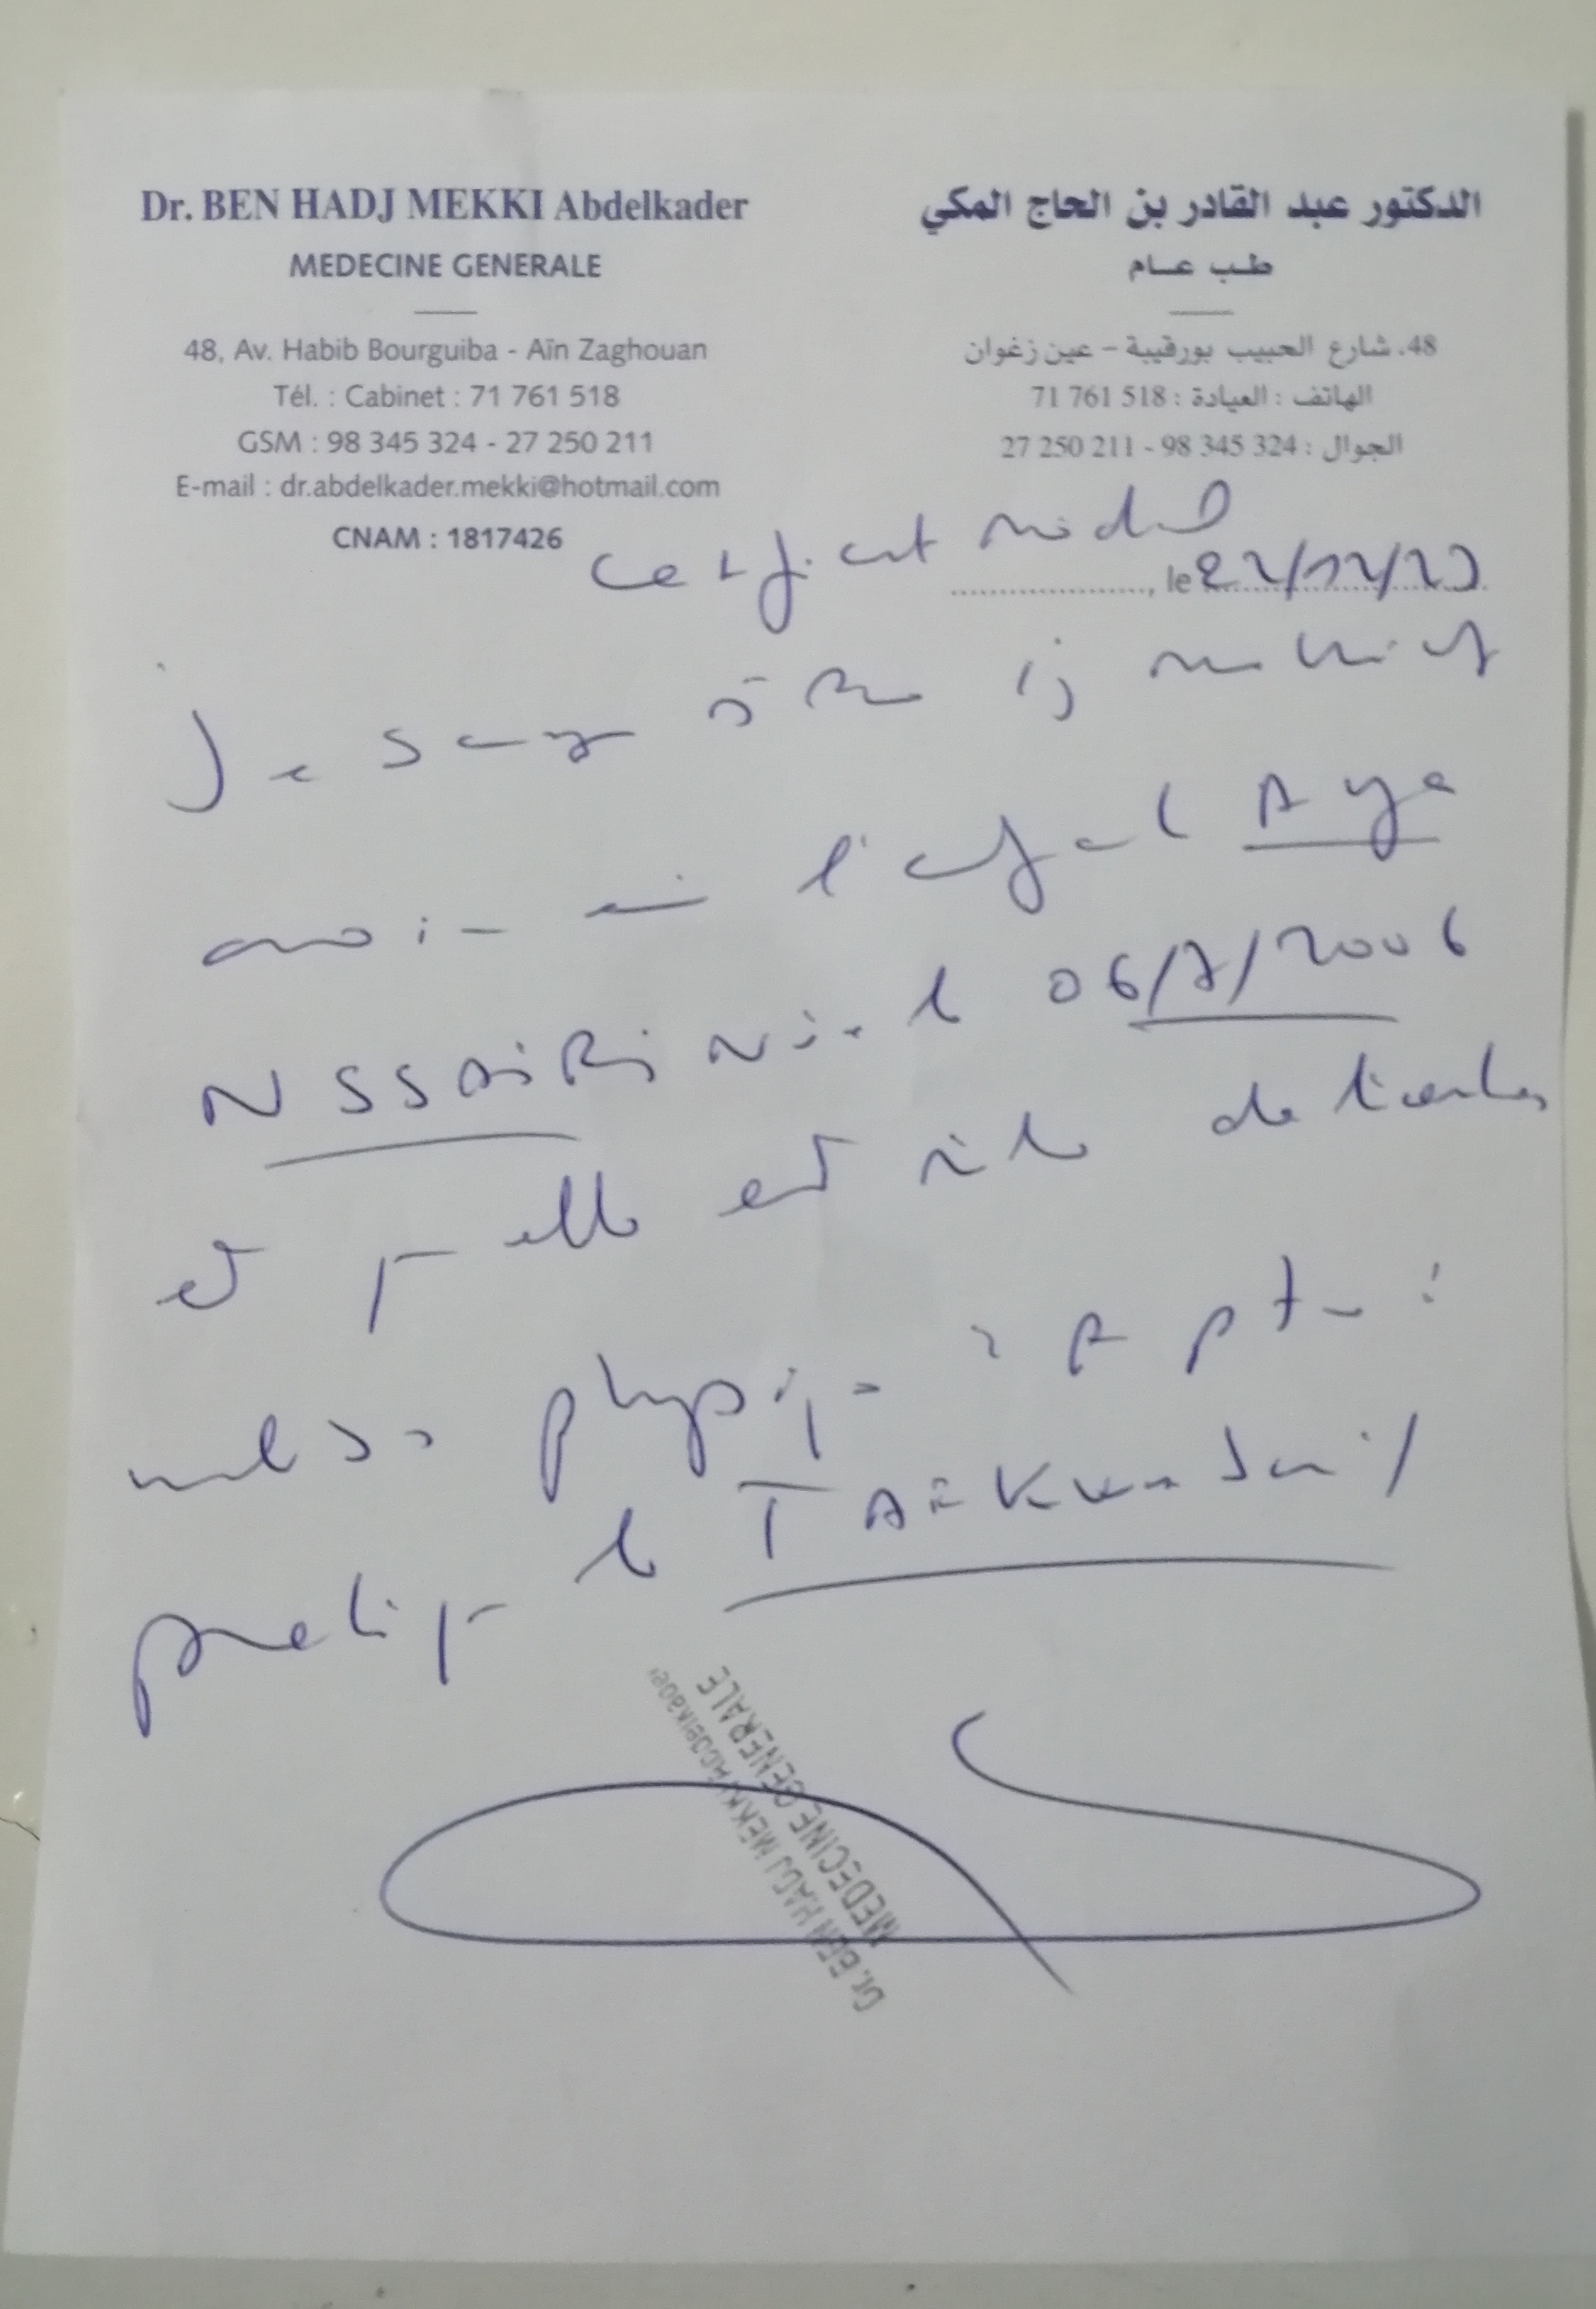 Dr. BEN HADJ MEKKI Abdelkader
MEDECINE GENERALE
48, Av. Habib Bourguiba - Aïn Zaghouan
Tél. : Cabinet : 71 761 518
GSM : 98 345 324 - 27 250 211
E-mail : dr.abdelkader.mekki@hotmail.com
CNAM : 1817426
الدكتور عبد القادر بن الحاج المكي
طب عام
48، شارع الحبيب بورقيبة - عين زغوان
الهاتف : العيادة : 71 761 518
الجوال : 98 345 324 - 27 250 211
Certificat médical
, le 22/12/23
Je
l'enfant Aya
NSSAIRI Née le 06/7/2006
et qu'elle est
physique apte à
pratiquer le TAEKwondo
Dr. BEN HADJ MEKKI Abdelkader
MEDECINE GENERALE